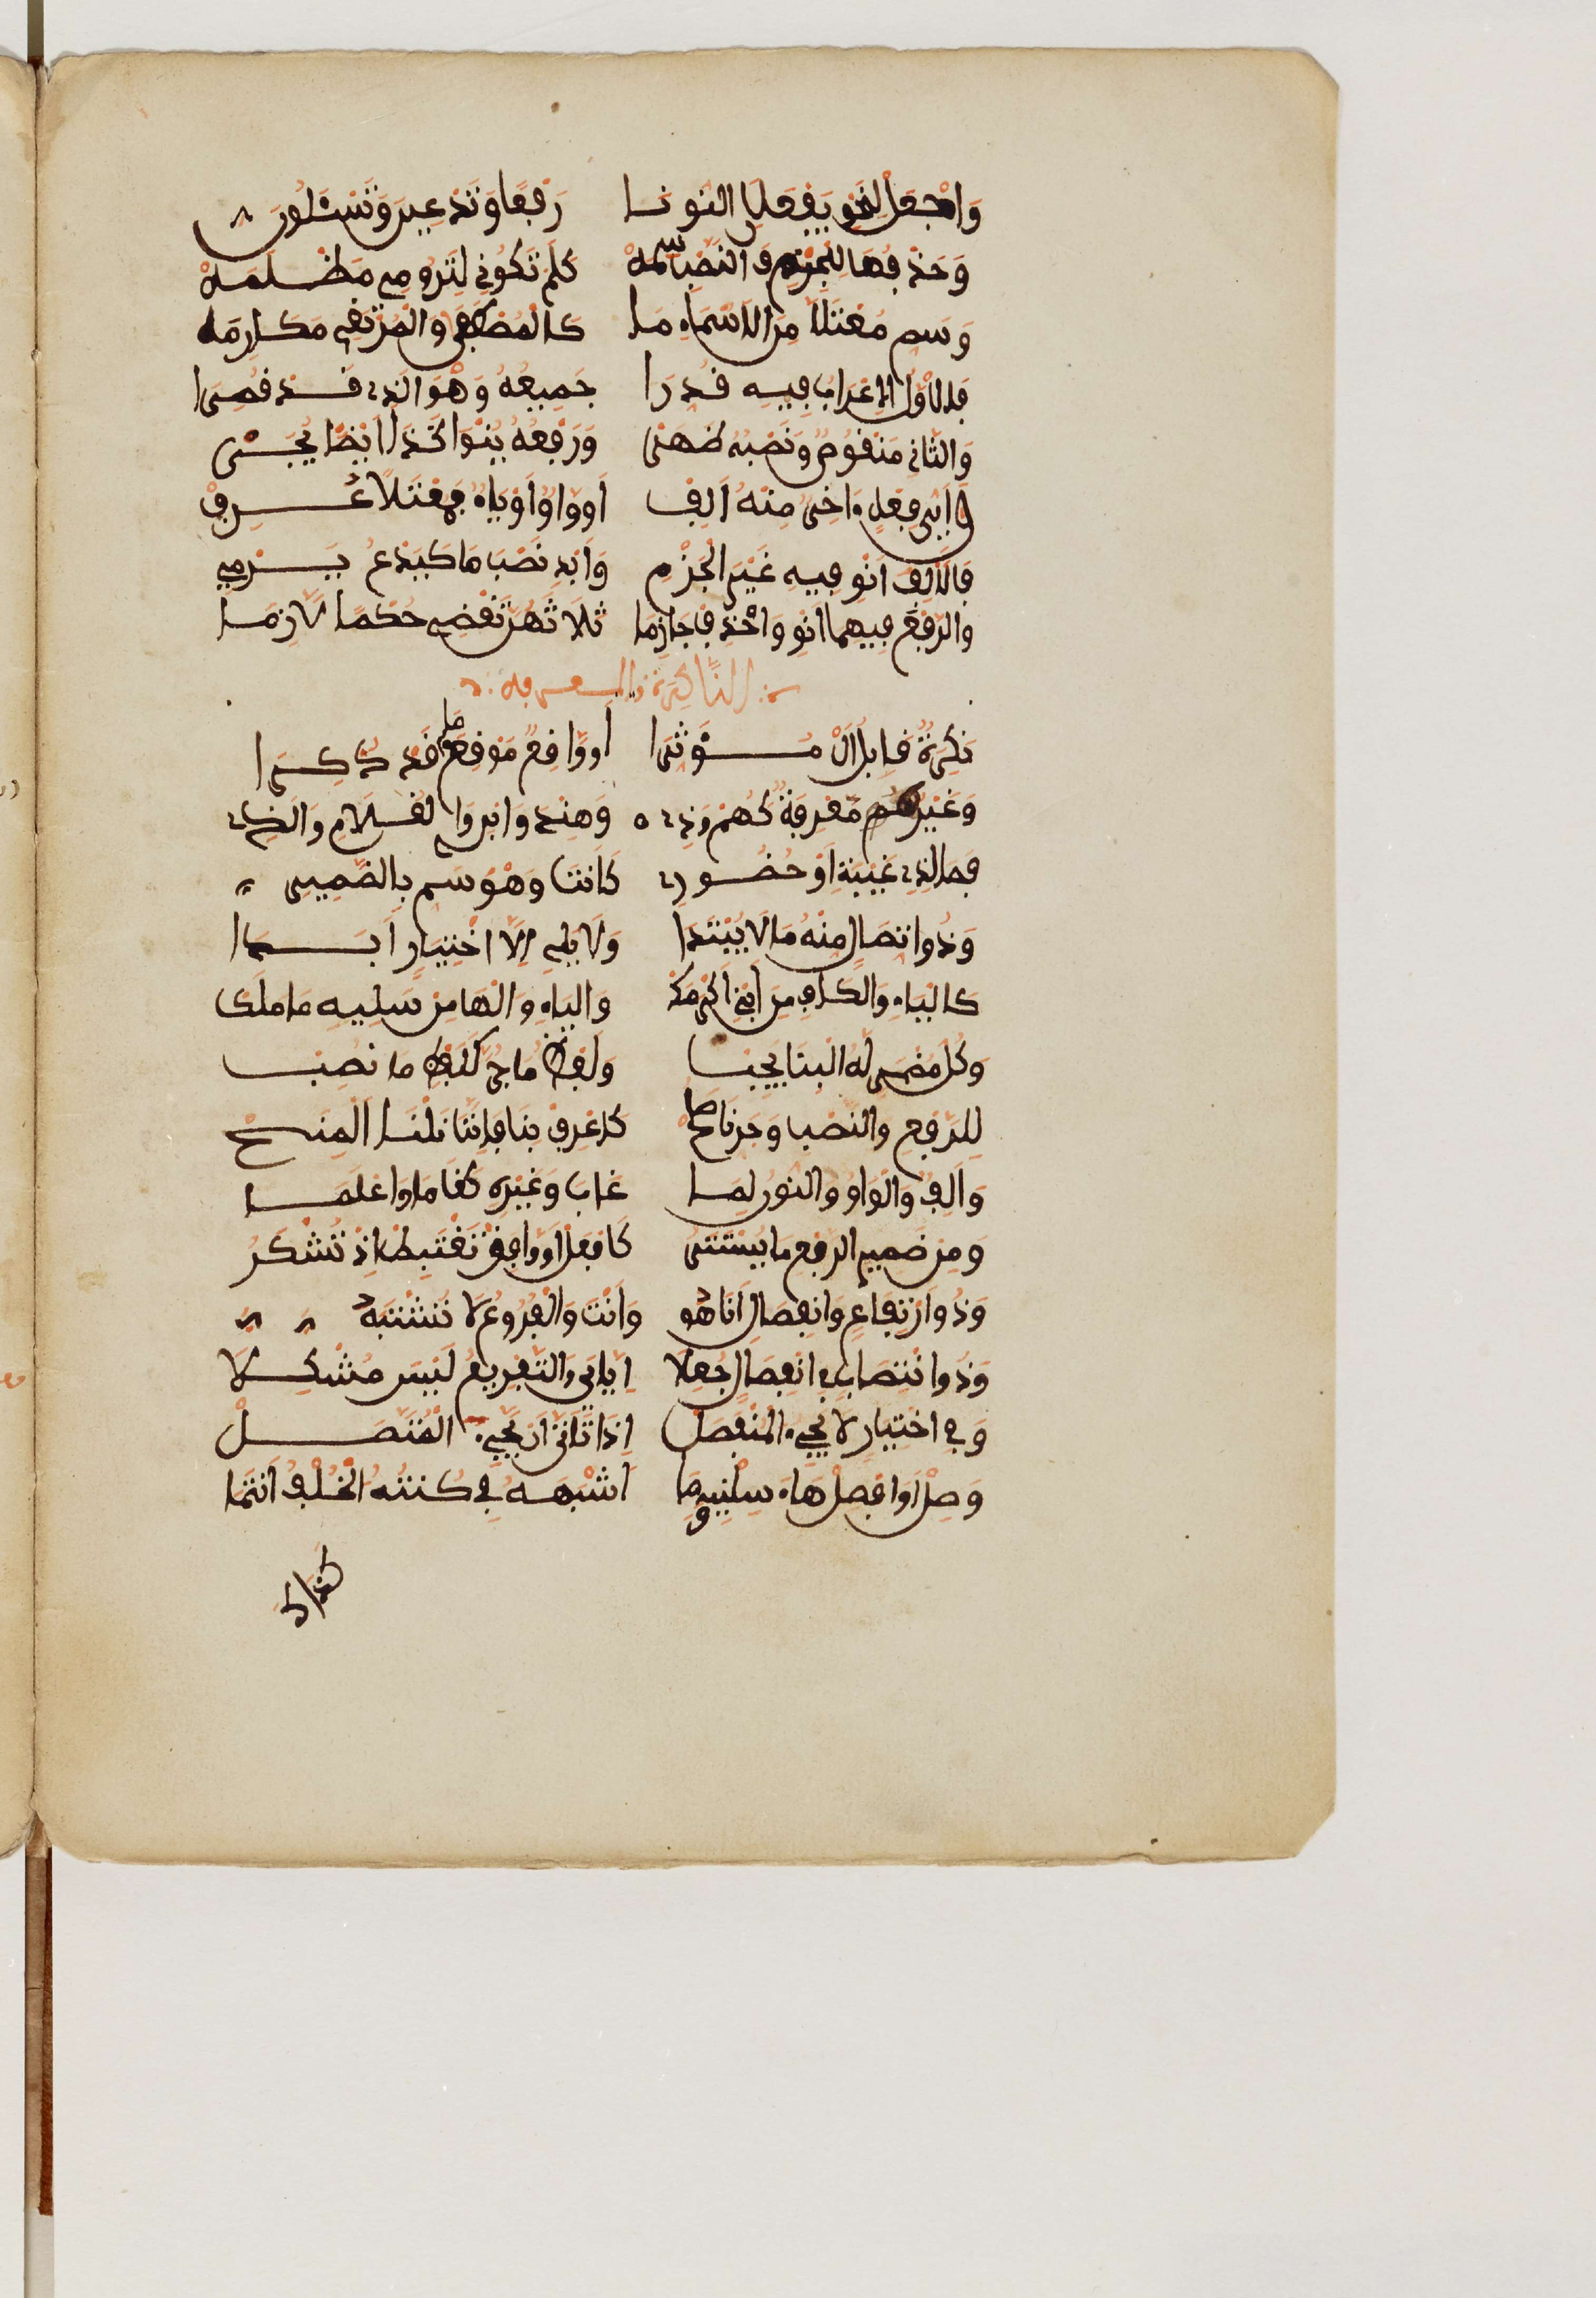 وَاجْعَلْ لِنَحْوِ يَفْعَلَانِ النُّونَا رَفْعًا وَتَدْعِينَ وَتَسْئَلُونَ
وَحَذْفُهَا لِلْجَزْمِ وَالنَّصْبِ سِمَهْ كَلَمْ تَكُونِي لِتَرُومِي مَظْلَمَهْ
وَسَمِّ مُعْتَلًّا مِنَ الْأَسْمَاءِ مَا كَالْمُصْطَفَى وَالْمُرْتَقِي مَكَارِمَا
فَالْأَوَّلُ الْإِعْرَابُ فِيهِ قُدِّرَا جَمِيعُهُ وَهْوَ الَّذِي قَدْ قُصِرَا
وَالثَّانِ مَنْقُوصٌ وَنَصْبُهُ ظَهَرْ وَرَفْعُهُ يُنْوَى كَذَا أَيْضًا يُجَرْ
وَأَيُّ فِعْلٍ آخِرٌ مِنْهُ أَلِفْ أَوْ وَاوٌ أَوْ يَاءٌ فَمُعْتَلًّا عُرِفْ
فَالْأَلِفَ انْوِ فِيهِ غَيْرَ الْجَزْمِ وَأَبْدِ نَصْبَ مَا كَيَدْعُو يَرْمِي
وَالرَّفْعَ فِيهِمَا انْوِ وَاحْذِفْ جَازِمَا ثَلَاثَهُنَّ تَقْضِ حُكْمًا لَازِمَا
النَّكِرَةُ وَالْمَعْرِفَة
نَكِرَةٌ قَابِلُ أَلْ مُؤَثِّرَا أَوْ وَاقِعٌ مَوْقِعَ مَا قَدْ ذُكِرَا
وَغَيْرُهُ مَعْرِفَةٌ كَهُمْ وَذِي وَهِنْدَ وَابْنِي وَالْغُلَامِ وَالَّذِي
فَمَا لِذِي غَيْبَةٍ أَوْ حُضُورِ كَأَنْتَ وَهْوَ سَمِّ بِالضَّمِيرِ
وَذُو اتِّصَالٍ مِنْهُ مَا لَا يُبْتَدَا وَلَا يَلِي إِلَّا اخْتِيَارًا أَبَدَا
كَالْيَاءِ وَالْكَافِ مِنَ ابْنِي أَكْرَمَكْ وَالْيَاءِ وَالْهَا مِنْ سَلِيهِ مَا مَلَكْ
وَكُلُّ مُضْمَرٍ لَهُ الْبِنَا يَجِبْ وَلَفْظُ مَا جُرَّ كَلَفْظِ مَا نُصِبْ
لِلرَّفْعِ وَالنَّصْبِ وَجَرٍّ نَا صَلَحْ كَاعْرِفْ بِنَا فَإِنَّنَا نِلْنَا الْمِنَحْ
وَأَلِفٌ وَالْوَاوُ وَالنُّونُ لِمَا غَابَ وَغَيْرِهِ كَقَامَا وَاعْلَمَا
وَمِنْ ضَمِيرِ الرَّفْعِ مَا يَسْتَتِرُ كَافْعَلْ أُوَافِقْ نَغْتَبِطْ إِذْ تُشْكَرُ
وَذُو ارْتِفَاعٍ وَانْفِصَالٍ أَنَا هُو وَأَنْتَ وَالْفُرُوعُ لَا تَشْتَبِهُ
وَذُو انْتِصَابٍ فِي انْفِصَالٍ جُعِلَا إِيَّايَ وَالتَّفْرِيعُ لَيْسَ مُشْكِلَا
وَفِي اخْتِيَارٍ لَا يَجِيءُ الْمُنْفَصِلْ إِذَا تَأَتَّى أَنْ يَجِيءَ الْمُتَّصِلْ
وَصِلْ أَوِ افْصِلْ هَاءَ سَلْنِيهِ وَمَا أَشْبَهَهُ فِي كُنْتُهُ الْخُلْفُ انْتَمَا
كذاك